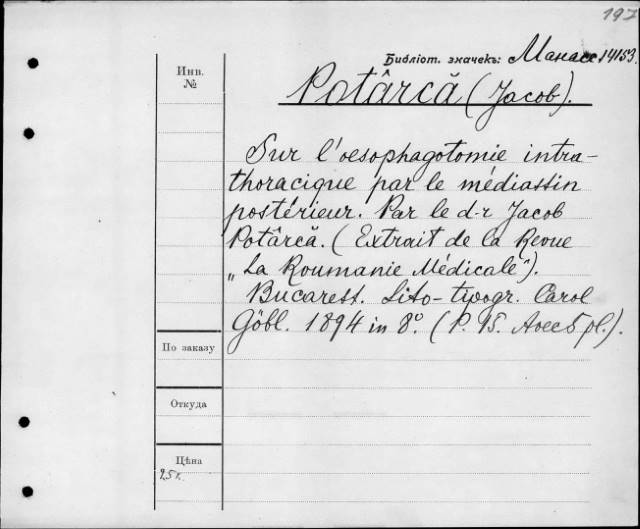 197
Библіот. значекъ: Манассе 14153.
Инв.
№
Potârcă (Jacob).
Sur l'oesophagotomie intra-
thoracique par le médiastin
postérieur. Par le d-r Jacob
Potârcă. (Extrait de la Revue
„La Roumanie Médicale").
Bucarest. Lito-tipogr. Carol
Göbl. 1894 in 8°. (P. 15. Avec 5 pl.).
По заказу
Откуда
Цѣна